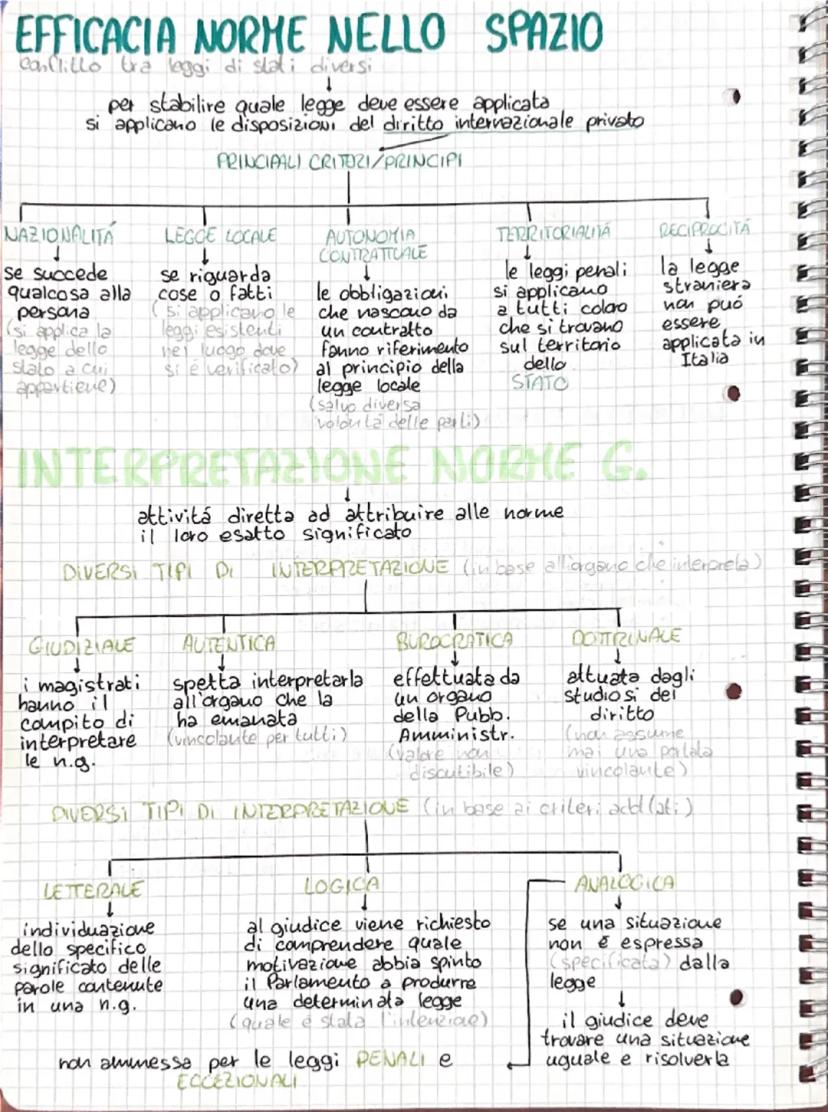 EFFICACIA NORME NELLO SPAZIO
conflitto tra leggi di stati diversi
per stabilire quale legge deve essere applicata
si applicano le disposizioni del diritto internazionale privato
PRINCIPALI CRITERI/PRINCIPI
NAZIONALITÁ
se succede
qualcosa alla
persona
(si applica la
legge dello
stato a cui
appartiene)
LEGGE LOCALE
se riguarda
cose o fatti
(si applicano le
leggi esistenti
nel luogo dove
si è verificato)
AUTONOMIA
CONTRATTUALE
le obbligazioni
che nascono da
un contratto
fanno riferimento
al principio della
legge locale
(salvo diversa
volontà delle parti)
TERRITORIALITÁ
le leggi penali
si applicano
a tutti coloro
che si trovano
sul territorio
dello
STATO
RECIPROCITÁ
la legge
straniera
non può
essere
applicata in
Italia
INTERPRETAZIONE NORME G.
attivitá diretta ad attribuire alle norme
il loro esatto significato
DIVERSI TIPI DI INTERPRETAZIONE (in base all'organo che interpreta)
GIUDIZIALE
i magistrati
hanno il
compito di
interpretare
le n.g.
AUTENTICA
spetta interpretarla
all'organo che la
ha emanata
(vincolante per tutti)
BUROCRATICA
effettuata da
un organo
della Pubb.
Amministr.
(valore non
discutibile)
DOTTRINALE
attuata dagli
studiosi del
diritto
(non assume
mai una portata
vincolante)
DIVERSI TIPI DI INTERPRETAZIONE (in base ai criteri
LETTERALE
individuazione
dello specifico
significato delle
parole contenute
in una n.g.
LOGICA
al giudice viene richiesto
di comprendere quale
motivazione abbia spinto
il Parlamento a produrre
una determinata legge
(quale è stata l'intenzione)
ANALOGICA
se una situazione
non è espressa
(specificata) dalla
legge
il giudice deve
trovare una situazione
uguale e risolverla
non ammessa per le leggi PENALI e
ECCEZIONALI